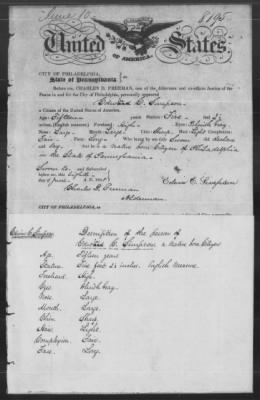 June 10
8195
United States
OF AMERICA.
CITY OF PHILADELPHIA,
State of Pennsylvania
Before me, CHARLES D. FREEMAN, one of the Aldermen and ex-officio Justice of the
Peace in and for the City of Philadelphia, personally appeared
Edward C. Simpson
a Citizen of the United States of America.
Age Fifteen years Stature Five feet 2½
inches, (English measure) Forehead High Eyes Bluish Gray
Nose Large Mouth Large Chin Sharp Hair Light Complexion
Fair Face Long Who being by me Sworn
say is a native born Citizen of Philadelphia
in the State of Pennsylvania
Sworn &
before me this eighth
day of June A.D. 18
Edwin C. Simpson
Charles D. Freeman
Alderman
CITY OF PHILADELPHIA, ss.
Edwin C. Simpson
Description of the person of
Edward C. Simpson a native born Citizen
Age Fifteen years
Stature Five feet 2½ inches English measure
Forehead High
Eyes Bluish Gray
Nose Large
Mouth Large
Chin Sharp
Hair Light
Complexion Fair
Face Long